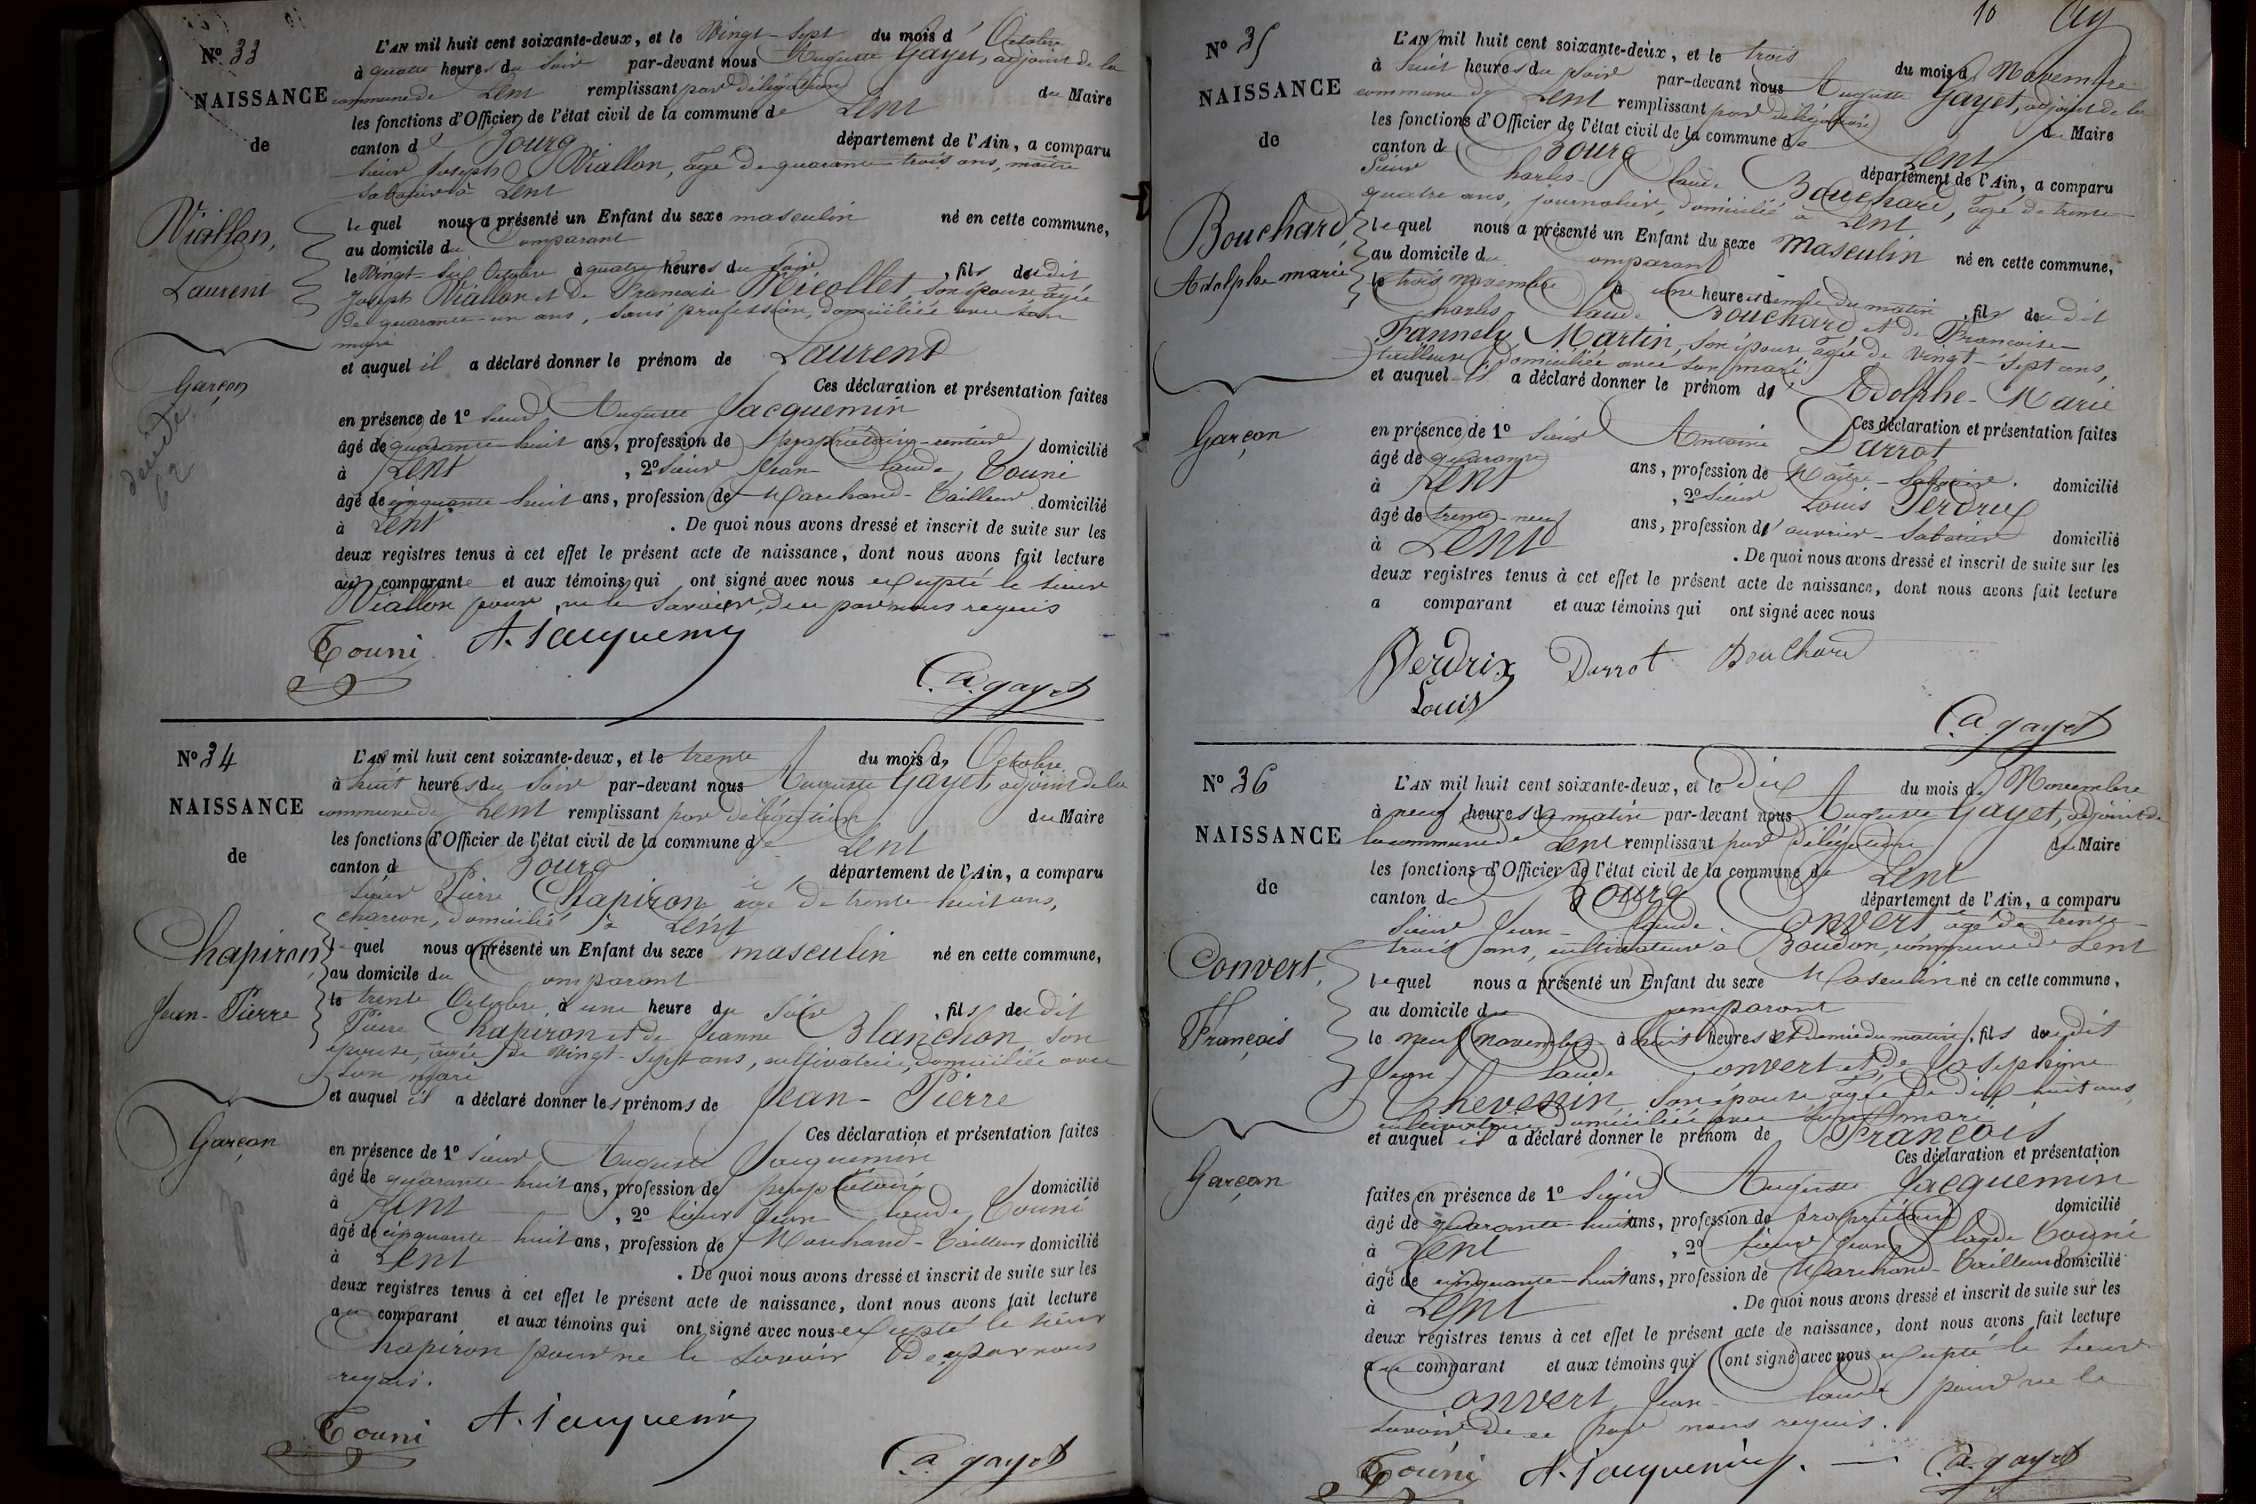 N° 33
NAISSANCE
de
Viallon,
Laurent
Garçon
L'AN mil huit cent soixante-deux, et le Vingt-Sept du mois d'Octobre
à quatre heures du soir par-devant nous Auguste Gayet, adjoint de la
commune de Lent remplissant par délégation du Maire
les fonctions d'Officier de l'état civil de la commune de Lent
canton de Bourg département de l'Ain, a comparu
Sieur Joseph Viallon, âgé de quarante-trois ans, maître
sabotier à Lent
lequel nous a présenté un Enfant du sexe masculin né en cette commune,
au domicile du Comparant
le Vingt-six Octobre à quatre heures du soir, fils du dit
Joseph Viallon et de Francoise Nicollet, son épouse âgée
de quarante-un ans, sans profession, domiciliée avec son
mari
et auquel il a déclaré donner le prénom de Laurent
Ces déclaration et présentation faites
en présence de 1° Sieur Auguste Jacquemin
âgé de quarante-huit ans, profession de propriétaire-rentier domicilié
à Lent, 2° Sieur Jean Claude Touni
âgé de cinquante-huit ans, profession de Marchand-Tailleur domicilié
à Lent. De quoi nous avons dressé et inscrit de suite sur les
deux registres tenus à cet effet le présent acte de naissance, dont nous avons fait lecture
au comparant et aux témoins qui ont signé avec nous excepté le sieur
Viallon pour ne le savoir, de ce par nous requis
Touni A. Jacquemin
C. A. gayet
N° 34
NAISSANCE
de
Chapiron,
Jean-Pierre
Garçon
L'AN mil huit cent soixante-deux, et le trente du mois d'Octobre
à huit heures du soir par-devant nous Auguste Gayet, adjoint de la
commune de Lent remplissant par délégation du Maire
les fonctions d'Officier de l'état civil de la commune de Lent
canton de Bourg département de l'Ain, a comparu
Sieur Pierre Chapiron âgé de trente-huit ans,
charron, domicilié à Lent
quel nous a présenté un Enfant du sexe masculin né en cette commune,
au domicile du Comparant
le trente Octobre, à une heure du soir, fils du dit
Pierre Chapiron et de Jeanne Blanchon, son
épouse, âgée de vingt-sept ans, cultivatrice, domiciliée avec
son mari
et auquel il a déclaré donner les prénoms de Jean-Pierre
Ces déclaration et présentation faites
en présence de 1° Sieur Auguste Jacquemin
âgé de quarante-huit ans, profession de propriétaire domicilié
à Lent, 2° Sieur Jean Claude Touni
âgé de cinquante-huit ans, profession de Marchand-Tailleur domicilié
à Lent. De quoi nous avons dressé et inscrit de suite sur les
deux registres tenus à cet effet le présent acte de naissance, dont nous avons fait lecture
au comparant et aux témoins qui ont signé avec nous excepté le sieur
Chapiron pour ne le savoir de ce par nous
requis.
Touni A. Jacquemin
C. A. gayet
10
N° 35
NAISSANCE
de
Bouchard,
Adolphe marie
Garçon
L'AN mil huit cent soixante-deux, et le trois du mois de Novembre
à huit heures du soir par-devant nous Auguste Gayet, adjoint de la
commune de Lent remplissant par délégation du Maire
les fonctions d'Officier de l'état civil de la commune de Lent
canton de Bourg département de l'Ain, a comparu
Sieur Charles-Claude Bouchard, âgé de trente-
quatre ans, journalier, domicilié à Lent
lequel nous a présenté un Enfant du sexe Masculin né en cette commune,
au domicile du Comparant
le trois novembre à une heure et demie du matin, fils du dit
Charles Claude Bouchard et de Francoise
Fannely Martin, son épouse âgée de vingt-sept ans,
tailleuse domiciliée avec son mari
et auquel il a déclaré donner le prénom de Adolphe-Marie
Ces déclaration et présentation faites
en présence de 1° Sieur Antoine Darrot
âgé de quarante ans, profession de Maître-Sabotier. domicilié
à Lent, 2° Sieur Louis Perdrix
âgé de trente-neuf ans, profession d'ouvrier-Sabotier domicilié
à Lent. De quoi nous avons dressé et inscrit de suite sur les
deux registres tenus à cet effet le présent acte de naissance, dont nous avons fait lecture
a comparant et aux témoins qui ont signé avec nous
Perdrix Darrot Bouchard
Louis
C. A. gayet
N° 36
NAISSANCE
de
Convert,
François
Garçon
L'AN mil huit cent soixante-deux, et le Dix du mois de Novembre
à neuf heures du matin par-devant nous Auguste Gayet, adjoint de
la commune de Lent remplissant par délégation du Maire
les fonctions d'Officier de l'état civil de la commune de Lent
canton de Bourg département de l'Ain, a comparu
Sieur Jean-Claude Convert âgé de trente-
trois ans, cultivateur à Boudon, commune de Lent
lequel nous a présenté un Enfant du sexe Masculin né en cette commune,
au domicile du Comparant
le neuf novembre à huit heures et demie du matin, fils du dit
Jean Claude Convert et de Josephine
Chevenin, son épouse âgée de dix huit ans,
cultivatrice domiciliée avec son mari
et auquel il a déclaré donner le prénom de François
Ces déclaration et présentation
faites en présence de 1° Sieur Auguste Jacquemin
âgé de quarante-huit ans, profession de propriétaire domicilié
à Lent, 2° Sieur Jean Claude Touni
âgé de cinquante-huit ans, profession de Marchand-Tailleur domicilié
à Lent. De quoi nous avons dressé et inscrit de suite sur les
deux registres tenus à cet effet le présent acte de naissance, dont nous avons fait lecture
au comparant et aux témoins qui ont signé avec nous excepté le sieur
Convert Jean-Claude pour ne le
savoir de ce par nous requis.
Touni A. Jacquemin. C. A. gayet